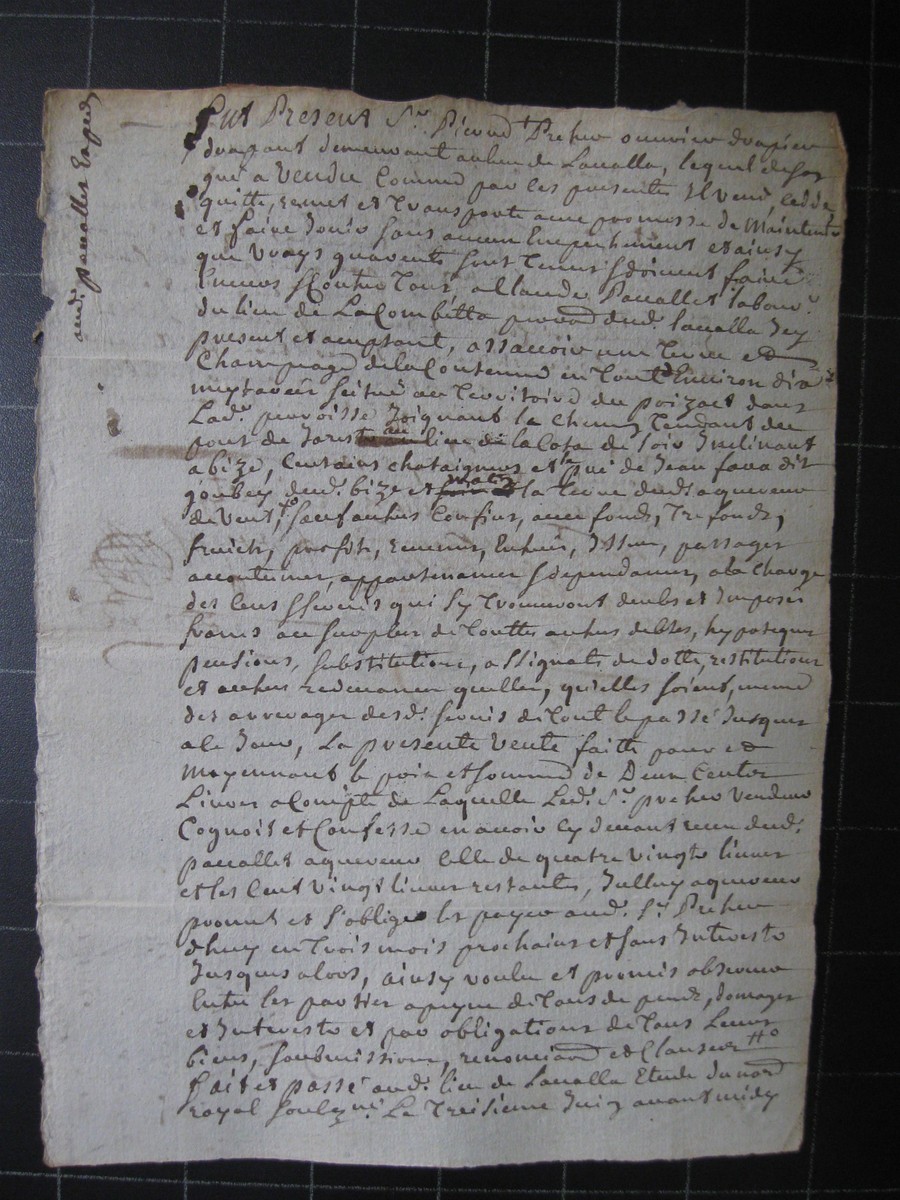 audt. paccallet Exped
fut Present Sr. Prher ouvrier drapier
drapant demeurant au lieu de Lavalla, lequel de son
gré a vendu Comme par les presente Il vend, cedde,
quitte, remet et Transporte avec promesse de Maintenir
et faire Jouir sans aucun Empeschement et ainsy
que vrays guarents sont Tenus faire
Envers & Contre Tous, a Claude Paccallet labour.
du lieu de La Combetta parois dud. lavalla Icy
present et acceptant, assavoir une Terre et
Champage de la Contenue en Tout d'Environ dix
meytarées scitué au Territoire du poizact dans
Lad. parroisse Joignant le chemin Tendant du
pont de au lieu de la Cota de soir Inclinant
a bize, Certains chataigners et pré de Jean fara dit
goubey dud. bize et matin la Terre dudt aquereur
de vent, sauf autres Confins, avec fonds, Trefonds,
fruicts, profits, revenus, Entrées, Issues, passages
accoutumés, appartenances & dependances, a la Charge
des Cens & servis qui s'y Trouveront deubs et Imposés
francs au surplus de Touttes autres debtes, hypoteques
pensions, substitutions, assignats de dotte, restitutions
et autres redevances quelles, qu'elles soient, mesme
des arrerages desd. servis de Tout le passé Jusques
a ce Jour, La presente vente faitte pour et
Moyennant le prix et somme de Deux Centes
Livres a Compte de Laquelle Led. Sr. prher vendeur
Cognoit et Confesse en avoir cy devant receu dud.
paccallet aquereur Celle de quatre vingts livres
et les Cent vingt livres restantes, Icelluy aquereur
promet et s'oblige les payer aud. Sr. Prher
d'huy en Trois mois prochains et sans Interests
Jusques alors, ainsy voulu et promis observer
Entre les parties a peyne de Tous depends, domages
et Interests et par obligations de Tous Leurs
biens, soubmissions, renonciaōns et Clauses
fait et passé aud. lieu de Lavalla Etude du no
royal soulzné Le Treisieme Juin avant midy